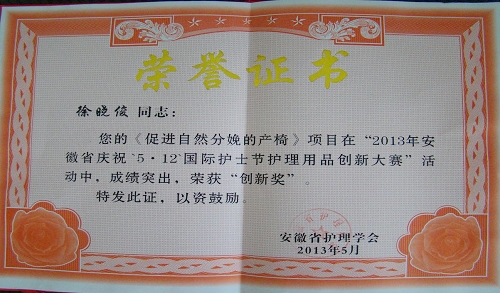 荣誉证书
徐晓俊 同志：
您的《促进自然分娩的产椅》项目在“2013年安
徽省庆祝‘5·12’国际护士节护理用品创新大赛”活
动中，成绩突出，荣获“创新奖”。
特发此证，以资鼓励。
安徽省护理学会
2013年5月